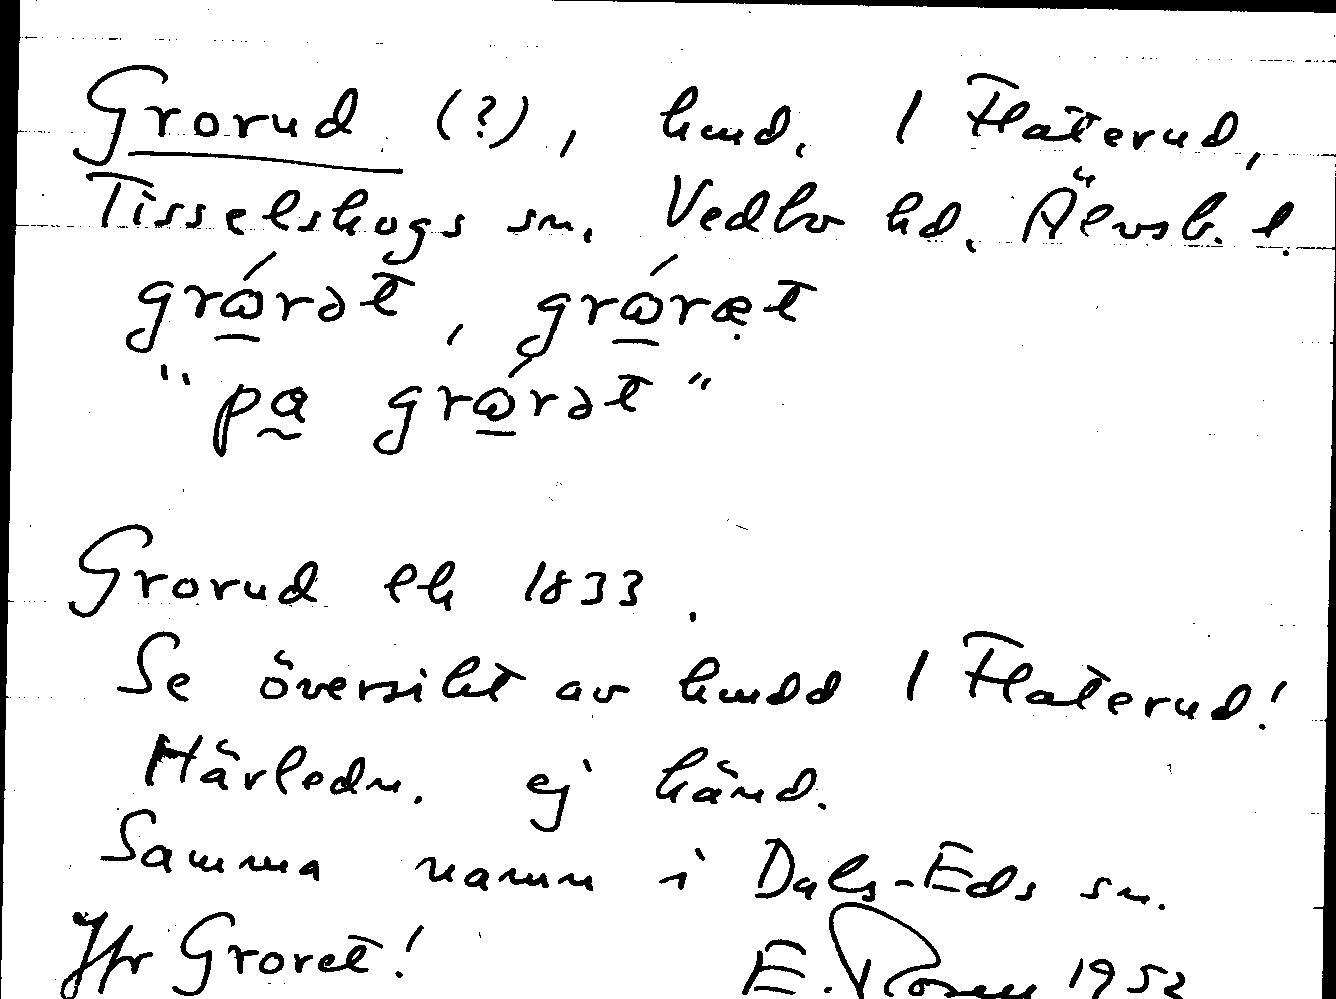 Grorud (?), hmd. 1 Flaterud,
Tisselskogs sn. Vedbo hd. Älvsb. l.
grώ̲rət, grώ̲ræ̣t
"pa̰ grώ̲rət"
Grorud lh 1833.
Se översikt av hmdd 1 Flaterud!
Härledn. ej känd.
Samma namn i Dals-Eds sn.
Jfr Groret!
E. Rosen 1952